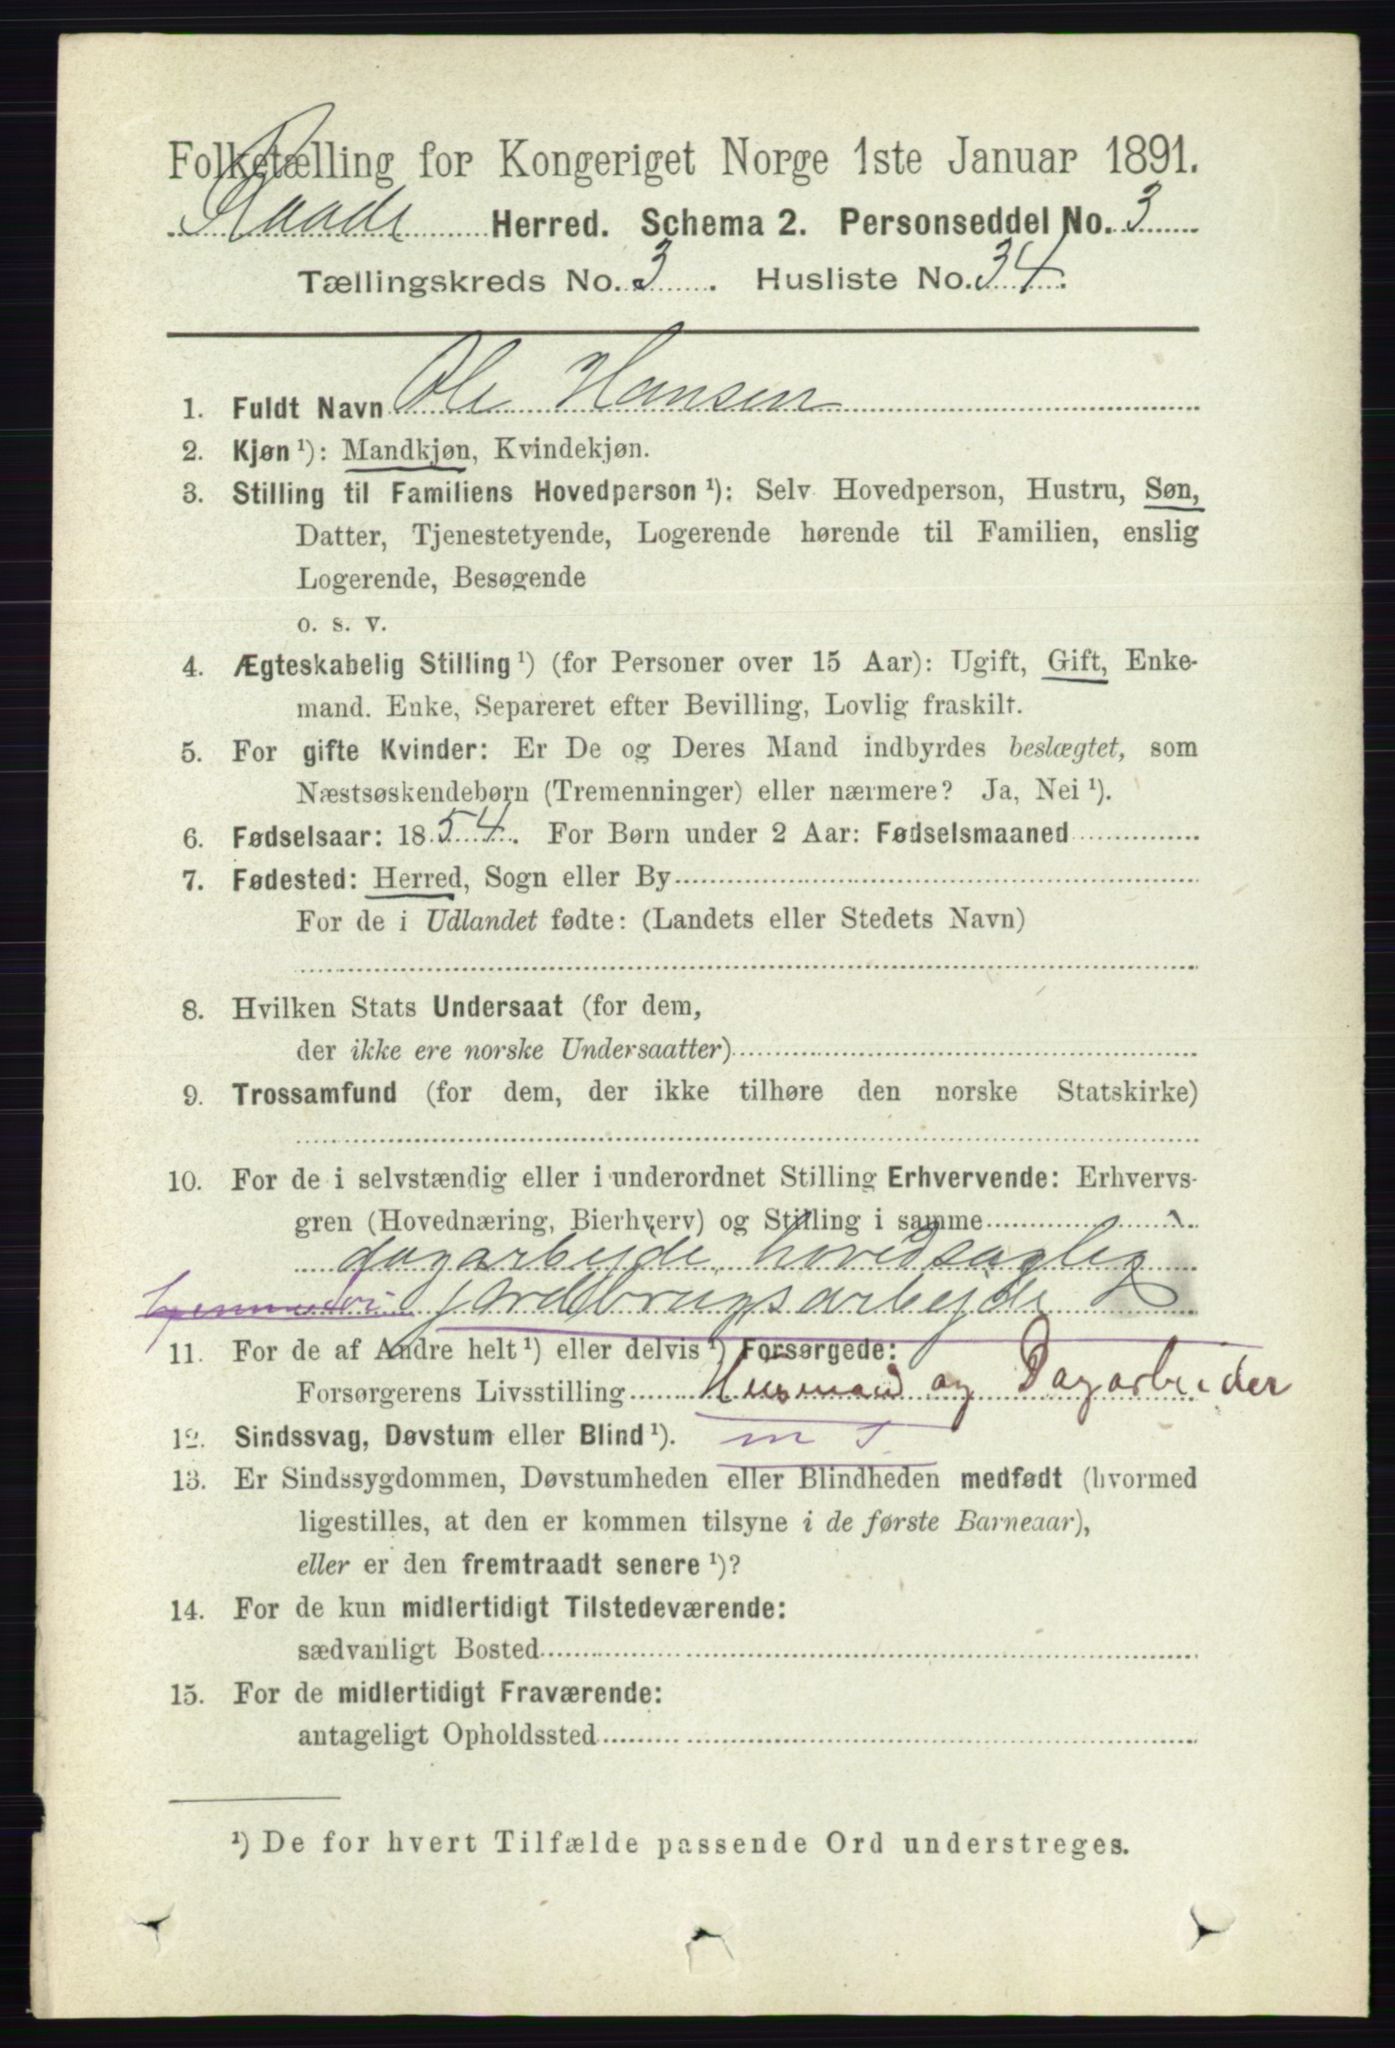 Folketælling for Kongeriget Norge 1ste Januar 1891.
Raade Herred. Schema 2. Personseddel No. 3
Tællingskreds No. 3. Husliste No. 34.
1. Fuldt Navn Ole Hansen
2. Kjøn ¹): Mandkjøn, Kvindekjøn.
3. Stilling til Familiens Hovedperson ¹): Selv Hovedperson, Hustru, Søn,
Datter, Tjenestetyende, Logerende hørende til Familien, enslig
Logerende, Besøgende
o. s. v.
4. Ægteskabelig Stilling ¹) (for Personer over 15 Aar): Ugift, Gift, Enke-
mand. Enke, Separeret efter Bevilling, Lovlig fraskilt.
5. For gifte Kvinder: Er De og Deres Mand indbyrdes beslægtet, som
Næstsøskendebørn (Tremenninger) eller nærmere? Ja, Nei ¹).
6. Fødselsaar: 1854. For Børn under 2 Aar: Fødselsmaaned
7. Fødested: Herred, Sogn eller By
For de i Udlandet fødte: (Landets eller Stedets Navn)
8. Hvilken Stats Undersaat (for dem,
der ikke ere norske Undersaatter)
9. Trossamfund (for dem, der ikke tilhøre den norske Statskirke)
10. For de i selvstændig eller i underordnet Stilling Erhvervende: Erhvervs-
gren (Hovednæring, Bierhverv) og Stilling i samme
dagarbejde, hovedsaglig
jordbrugsarbejde
11. For de af Andre helt ¹) eller delvis ¹) Forsørgede:
Forsørgerens Livsstilling Husmand og Dagarbeider
12. Sindssvag, Døvstum eller Blind ¹).
13. Er Sindssygdommen, Døvstumheden eller Blindheden medfødt (hvormed
ligestilles, at den er kommen tilsyne i de første Barneaar),
eller er den fremtraadt senere ¹)?
14. For de kun midlertidigt Tilstedeværende:
sædvanligt Bosted
15. For de midlertidigt Fraværende:
antageligt Opholdssted
¹) De for hvert Tilfælde passende Ord understreges.